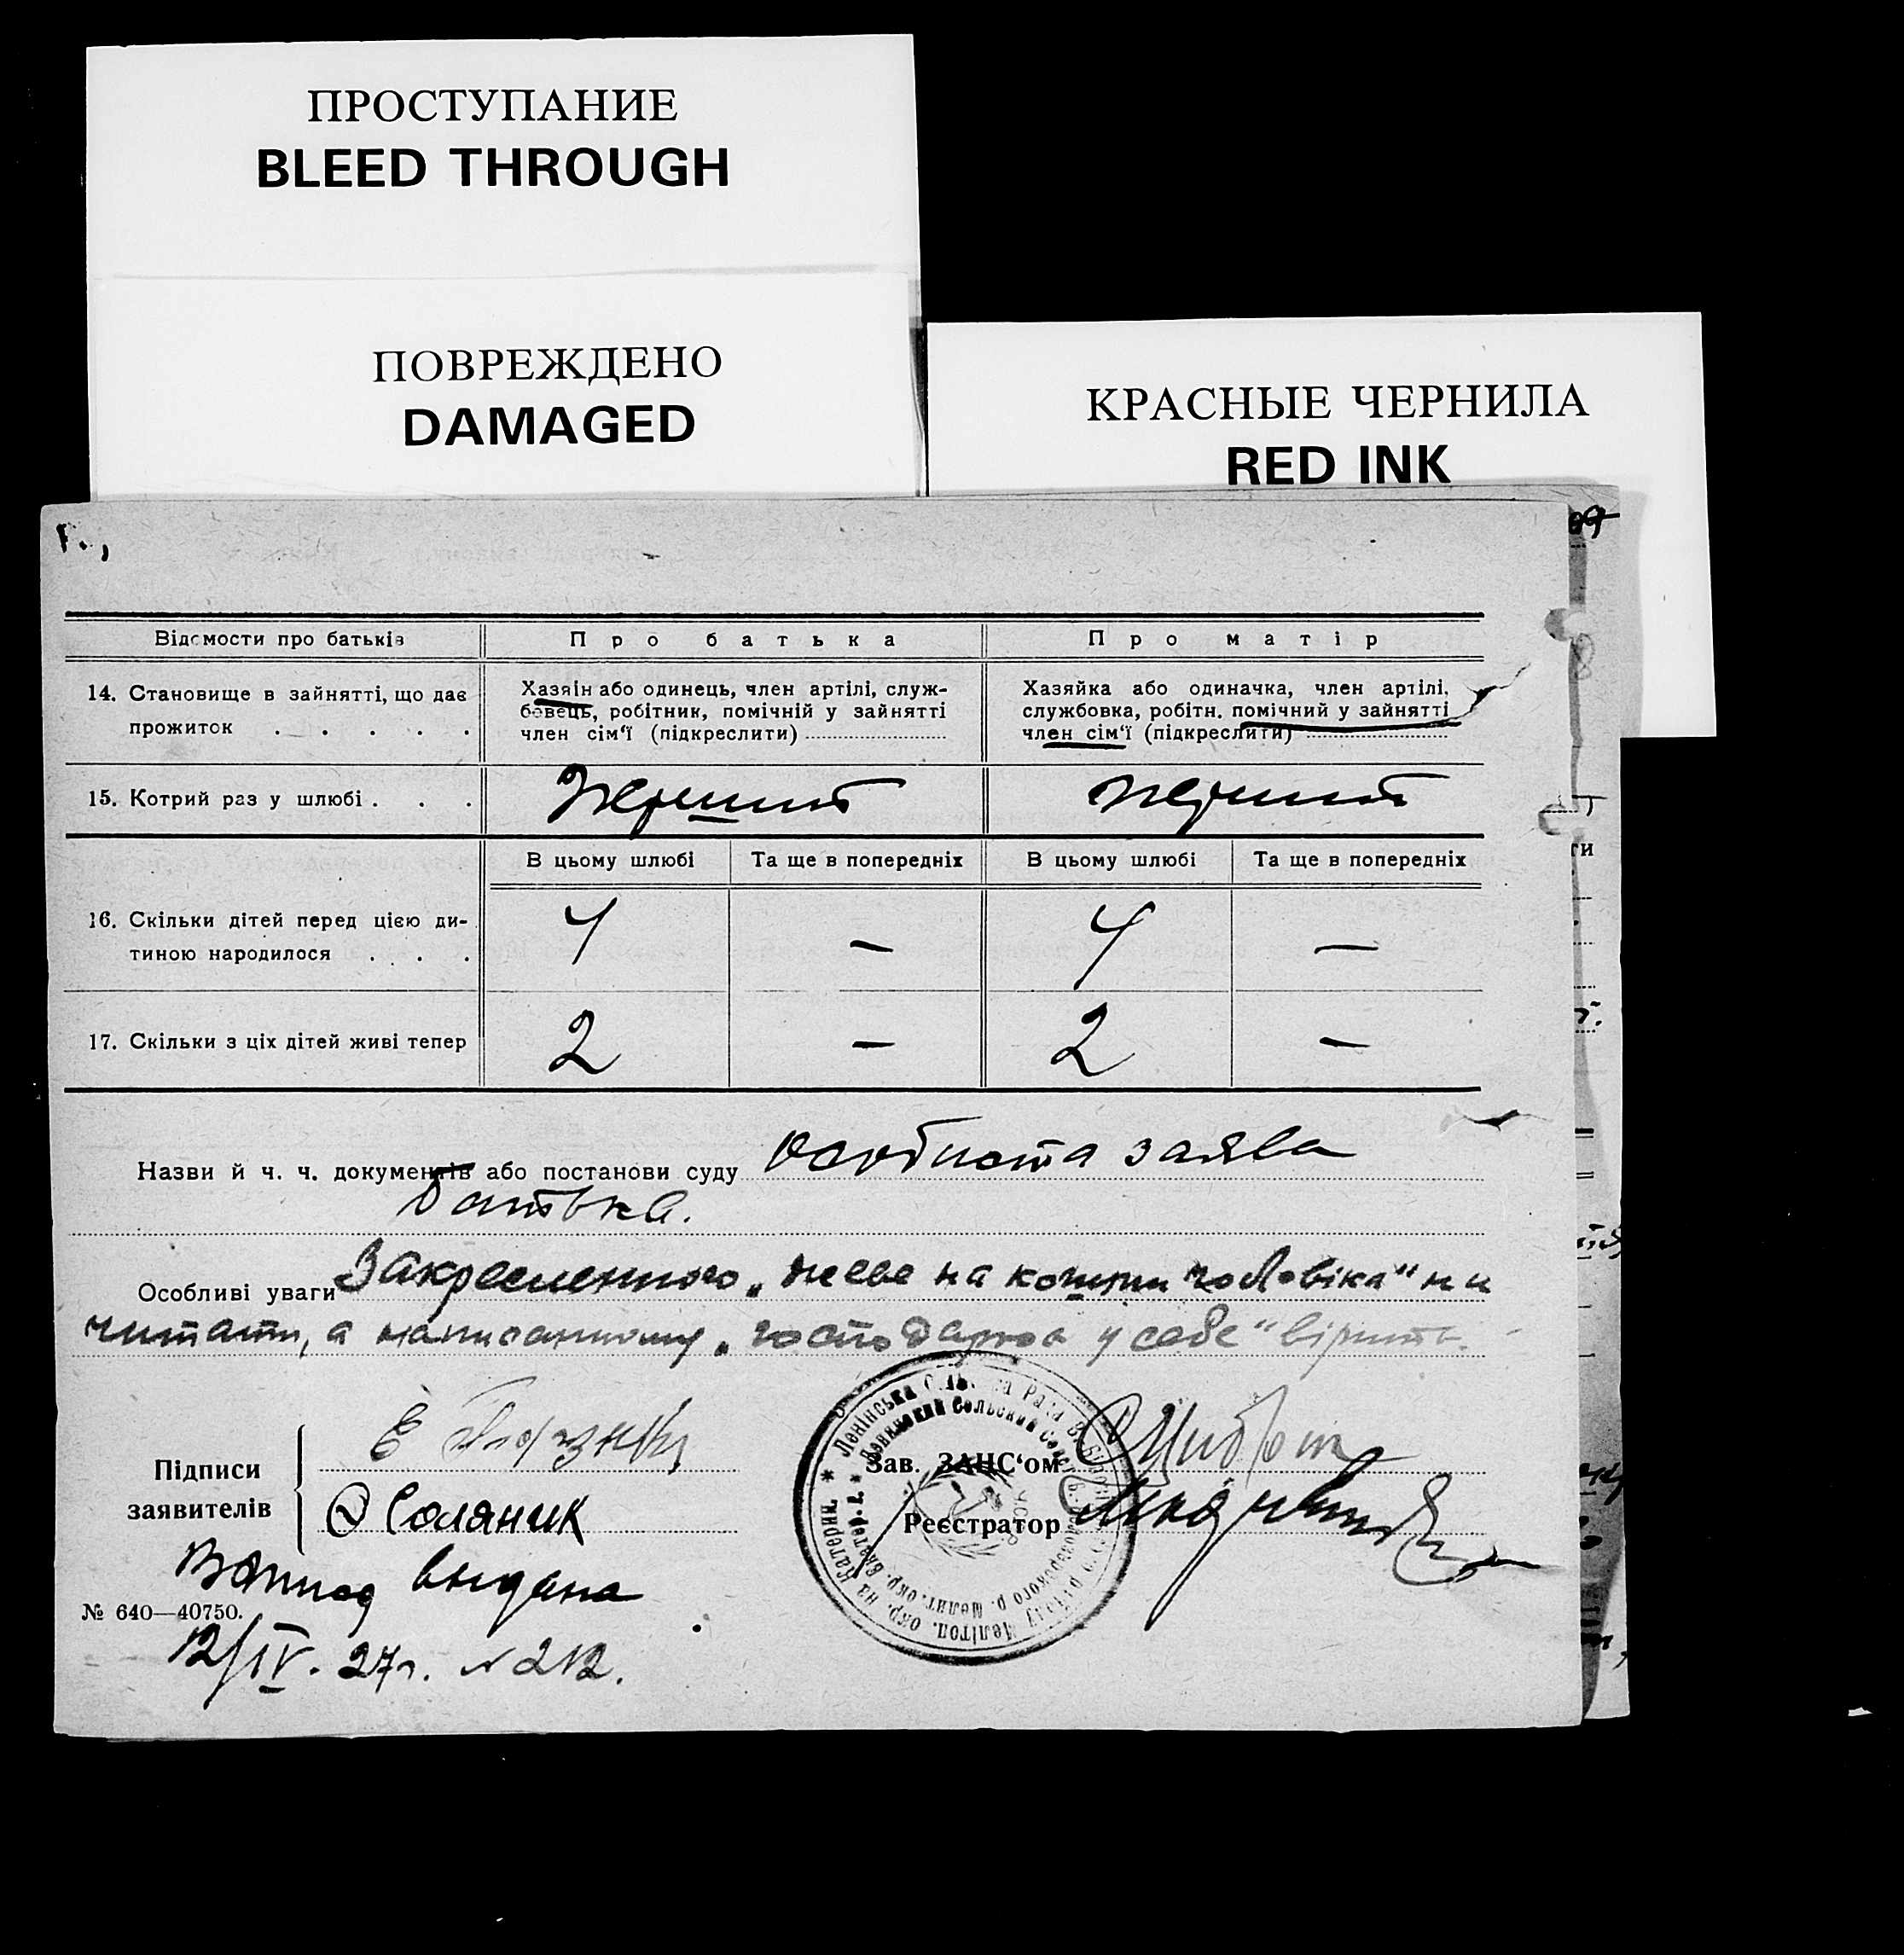 ПРОСТУПАНИЕ
BLEED THROUGH
ПОВРЕЖДЕНО
DAMAGED
КРАСНЫЕ ЧЕРНИЛА
RED INK
Відомости про батьків
Про батька
Про матір
14. Становище в зайнятті, що дає
прожиток . . . . .
Хазяїн або одинець, член артілі, служ-
бовець, робітник, помічній у зайнятті
член сім'ї (підкреслити)
Хазяйка або одиначка, член артілі,
службовка, робітн. помічний у зайнятті
член сім'ї (підкреслити)
15. Котрий раз у шлюбі . . .
Перший
перший
В цьому шлюбі
Та ще в попередніх
В цьому шлюбі
Та ще в попередніх
16. Скільки дітей перед цією ди-
тиною народилося . . . .
4
—
4
—
17. Скільки з ціх дітей живі тепер
2
—
2
—
Назви й ч. ч. документів або постанови суду особиста заява
батька.
Особливі уваги Закресленного „живе на кошти чоловіка" ни
читати, а написанному „господарює у себе" вірить.
Підписи
заявителів
Е
Соляник
Зав. ЗАПС'ом
Реєстратор
Ленінська Сільська Рада
Ленинский Сельский Совет
выдана
№ 640—40750.
12/IV. 27г. № 212.